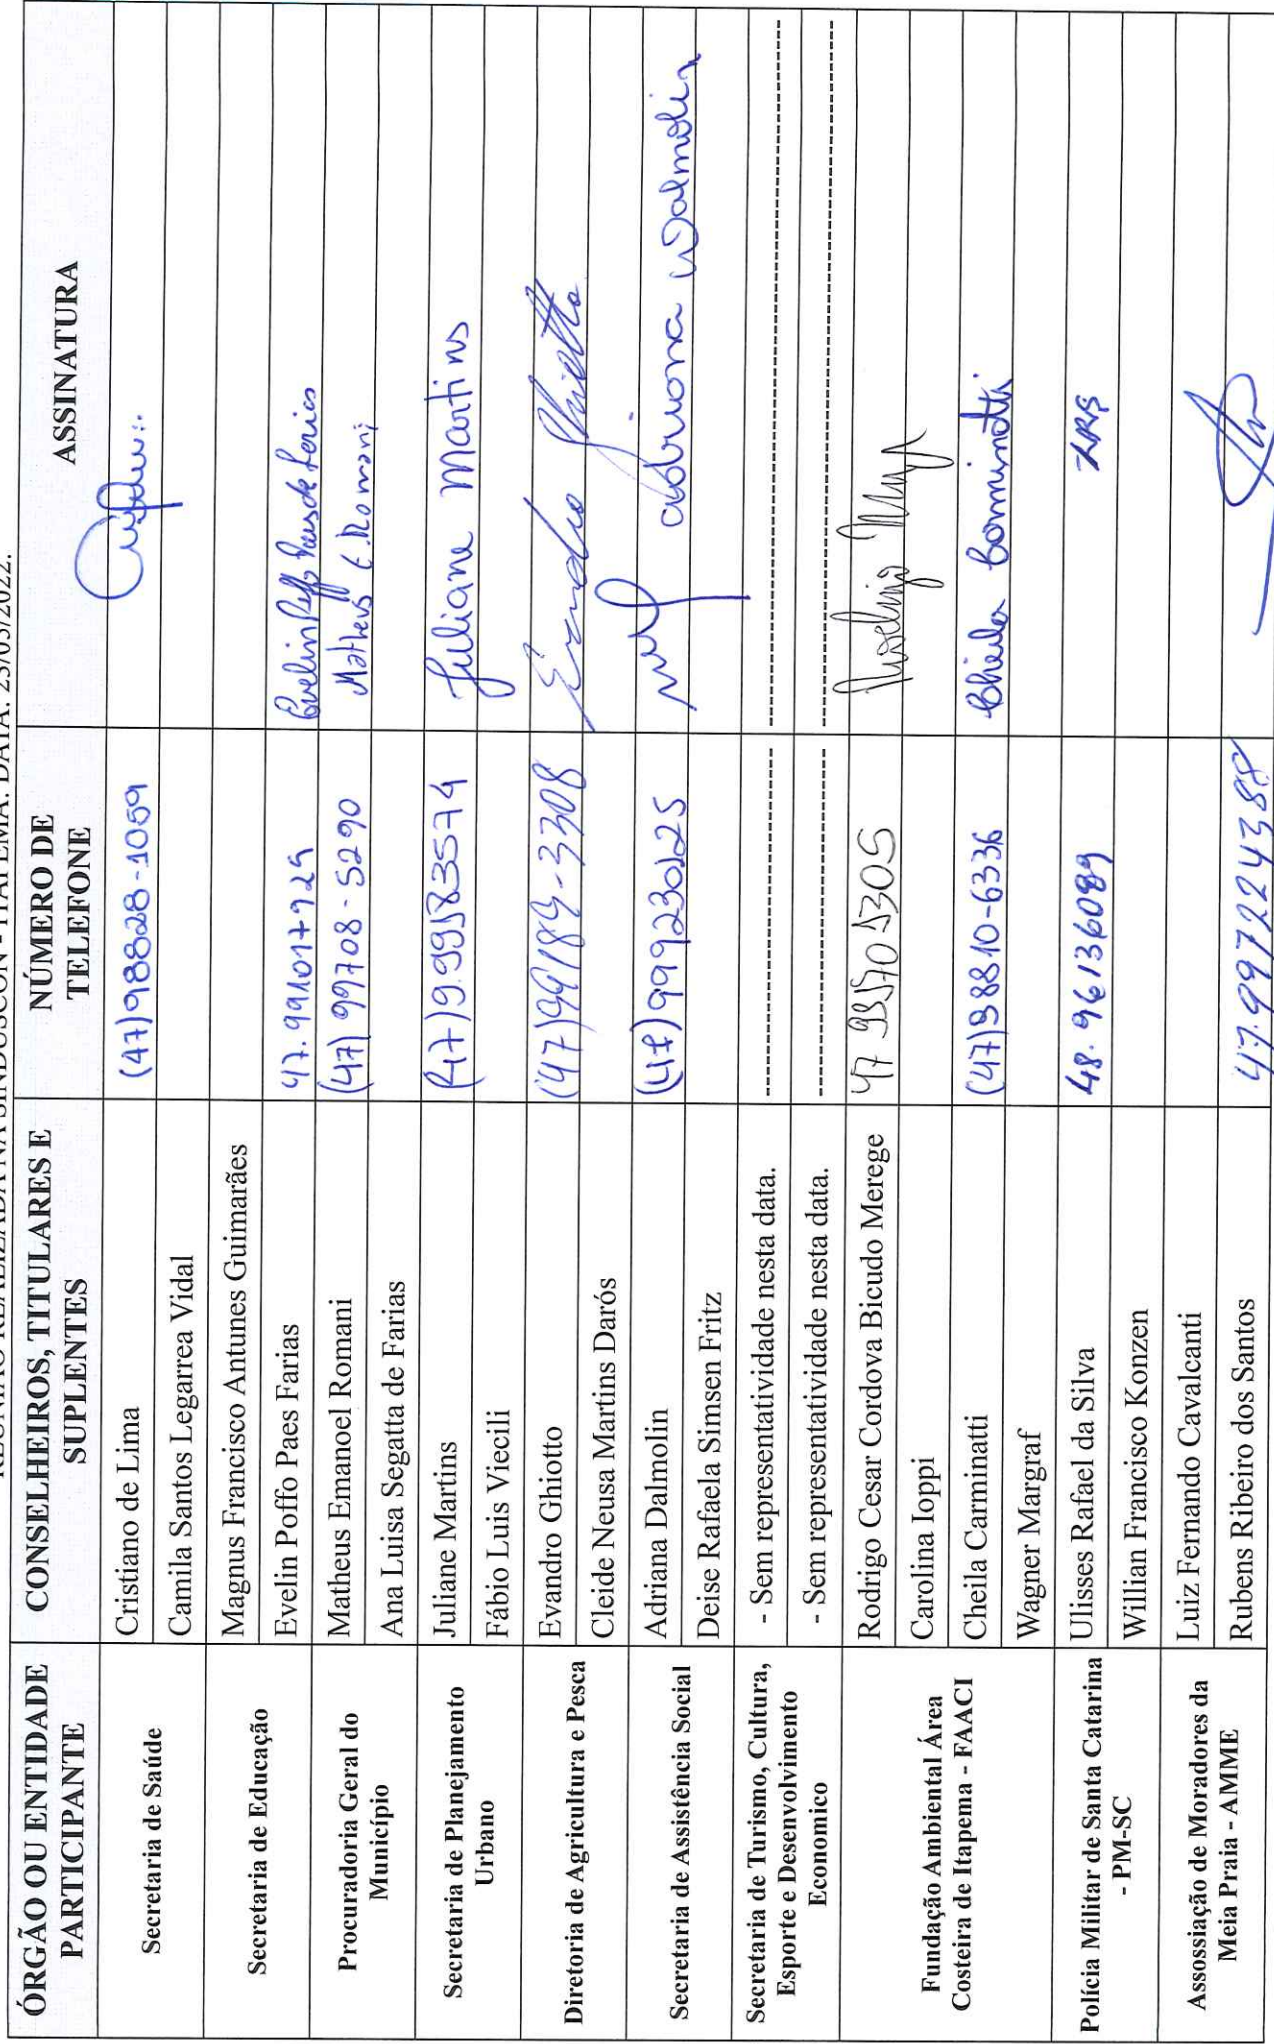 REUNIÃO REALIZADA NA SINDUSCON - ITAPEMA. DATA: 23/03/2022.
ÓRGÃO OU ENTIDADE PARTICIPANTE
CONSELHEIROS, TITULARES E SUPLENTES
NÚMERO DE TELEFONE
ASSINATURA
Secretaria de Saúde
Cristiano de Lima
(47)98828-1059
Camila Santos Legarrea Vidal
Secretaria de Educação
Magnus Francisco Antunes Guimarães
Evelin Poffo Paes Farias
47.991017929
Evelin Poffo Paes de Farias
Procuradoria Geral do Município
Matheus Emanoel Romani
(47) 99708-5290
Matheus E. Romani
Ana Luisa Segatta de Farias
Secretaria de Planejamento Urbano
Juliane Martins
(47)9.99183574
Juliane Martins
Fábio Luis Viecili
Diretoria de Agricultura e Pesca
Evandro Ghiotto
(47)99184-3308
Evandro Ghiotto
Cleide Neusa Martins Darós
Secretaria de Assistência Social
Adriana Dalmolin
(47)999230125
Adriana Dalmolin
Deise Rafaela Simsen Fritz
Secretaria de Turismo, Cultura, Esporte e Desenvolvimento Economico
- Sem representatividade nesta data.
- Sem representatividade nesta data.
Fundação Ambiental Área Costeira de Itapema - FAACI
Rodrigo Cesar Cordova Bicudo Merege
Carolina Ioppi
Cheila Carminatti
(47)98810-6336
Cheila Carminatti
Wagner Margraf
Polícia Militar de Santa Catarina - PM-SC
Ulisses Rafael da Silva
48.96136089
Willian Francisco Konzen
Assossiação de Moradores da Meia Praia - AMME
Luiz Fernando Cavalcanti
Rubens Ribeiro dos Santos
47.997224388